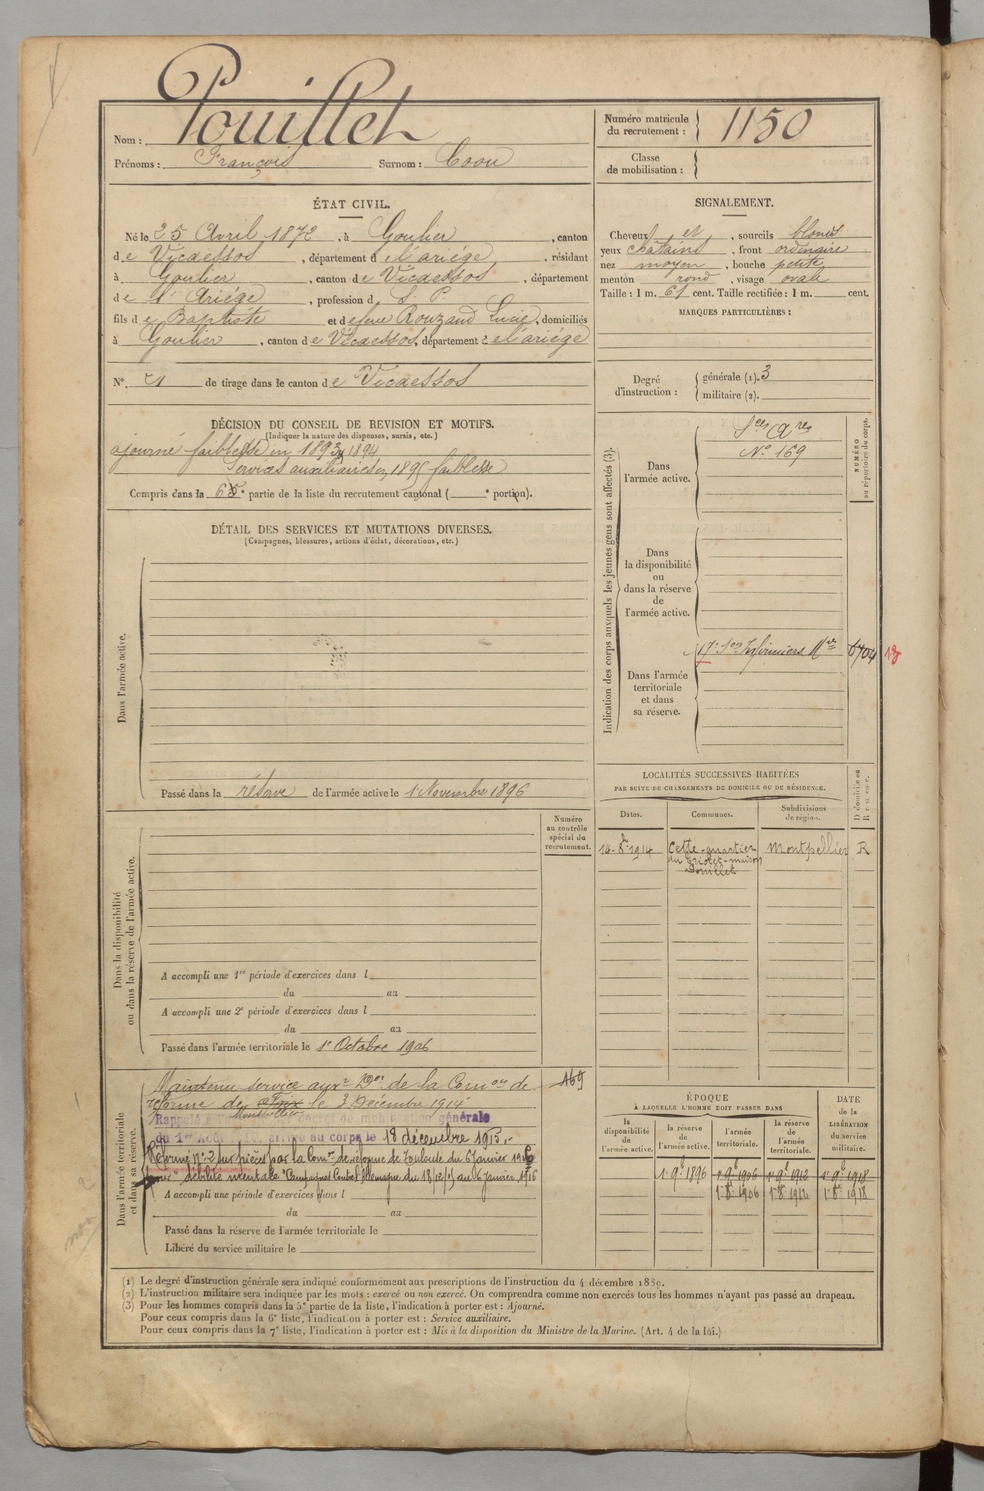 Nom : Pouillet
Prénoms : François Surnom : Coou
Numéro matricule du recrutement : 1150
Classe de mobilisation :
ÉTAT CIVIL.
Né le 25 Avril 1872, à Goulier, canton
de Vicdessos, département de l'ariége, résidant
à Goulier, canton de Vicdessos, département
de l'Ariége, profession d S. P.
fils de Baptiste et de feue Rouzaud Lucie, domiciliés
à Goulier, canton de Vicdessos, département de l'ariége
N° 21 de tirage dans le canton de Vicdessos
SIGNALEMENT.
Cheveux et, sourcils blonds
yeux chatains, front ordinaire
nez moyen, bouche petite
menton rond, visage ovale
Taille : 1 m. 61 cent. Taille rectifiée : 1 m. cent.
MARQUES PARTICULIÈRES :
Degré d'instruction : générale (1). 3
militaire (2).
DÉCISION DU CONSEIL DE REVISION ET MOTIFS.
(Indiquer la nature des dispenses, sursis, etc.)
ajourné faiblesse en 1893, 1894
Services auxiliaires en 1895 faiblesse
Compris dans la 6e partie de la liste du recrutement cantonal ( e portion).
DÉTAIL DES SERVICES ET MUTATIONS DIVERSES.
(Campagnes, blessures, actions d'éclat, décorations, etc.)
Dans l'armée active.
Passé dans la réserve de l'armée active le 1 Novembre 1896
Indication des corps auxquels les jeunes gens sont affectés (3).
NUMÉRO au répertoire du corps.
Dans l'armée active.
Sces Ares
N° 169
Dans la disponibilité ou dans la réserve de l'armée active.
Dans l'armée territoriale et dans sa réserve.
17e Son Infirmiers Mre 6704 18
LOCALITÉS SUCCESSIVES HABITÉES
PAR SUITE DE CHANGEMENTS DE DOMICILE OU DE RÉSIDENCE.
Dates. Communes. Subdivisions de région. D domicile ou R résidence.
1914 Cette-quartier Montpellier R
du Triolet-maison
Pouillet
Numéro au contrôle spécial du recrutement.
Dans la disponibilité ou dans la réserve de l'armée active.
A accompli une 1re période d'exercices dans l
du au
A accompli une 2e période d'exercices dans l
du au
Passé dans l'armée territoriale le 1e Octobre 1906
Dans l'armée territoriale et dans sa réserve.
Maintenu service auxre Don de la Comon de 169
réforme de Foix le 3 Décembre 1914
Montpellier
Rappelé décret de mobilisation générale
du 1er Août arrivé au corps le 18 décembre 1915.
Réformé n° 2 sur pièces par la Comon de réforme de Toulouse du 6 janvier 1916
pour débilité mentale Campagnes Contre l'Allemagne du 18/12/15 au 6 Janvier 1916
A accompli une période d'exercices dans l
du au
Passé dans la réserve de l'armée territoriale le
Libéré du service militaire le
ÉPOQUE
À LAQUELLE L'HOMME DOIT PASSER DANS
DATE de la LIBÉRATION du service militaire.
la disponibilité de l'armée active. la réserve de l'armée active. l'armée territoriale. la réserve de l'armée territoriale.
1 9bre 1896 1 9bre 1906 1 9bre 1912 1 9bre 1918
1 8bre 1906 1 8bre 1912 1 8bre 1918
(1) Le degré d'instruction générale sera indiqué conformément aux prescriptions de l'instruction du 4 décembre 1889.
(2) L'instruction militaire sera indiquée par les mots : exercé ou non exercé. On comprendra comme non exercés tous les hommes n'ayant pas passé au drapeau.
(3) Pour les hommes compris dans la 5e partie de la liste, l'indication à porter est : Ajourné.
Pour ceux compris dans la 6e liste, l'indication à porter est : Service auxiliaire.
Pour ceux compris dans la 7e liste, l'indication à porter est : Mis à la disposition du Ministre de la Marine. (Art. 4 de la loi.)